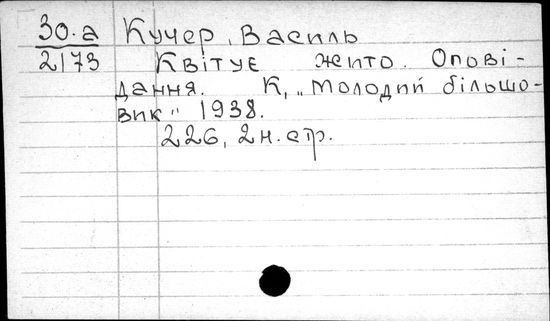 30.а Кучер, Василь
2173 Квітує жито. Опові-
дання. К, „Молодий більшо-
вик" 1938.
226, 2 н. стр.